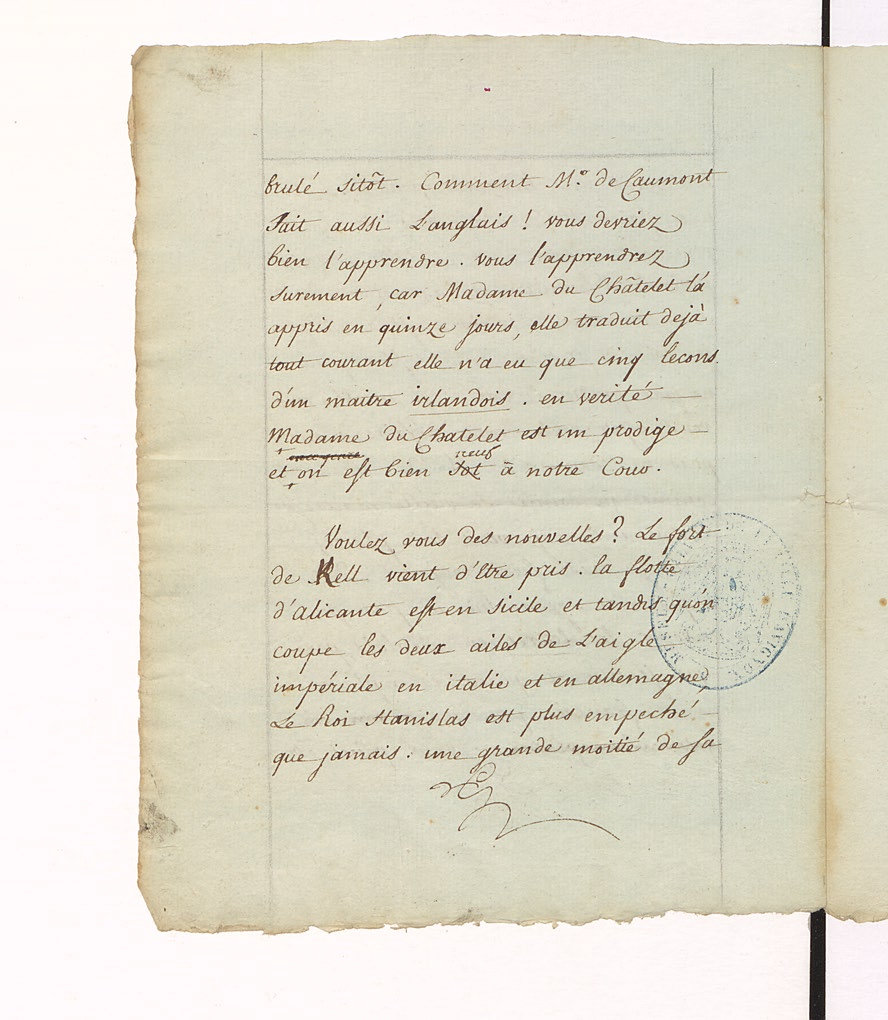 brulé sitôt. Comment Mr. de Caumont
Sait aussi L'anglais! vous devriez
bien l'apprendre. vous l'apprendrez
surement, car Madame du Châtelet l'a
appris en quinze jours, elle traduit dejà
tout courant elle n'a eu que cinq lecons
d'un maitre irlandois. en verité
Madame du Chatelet est un prodige
neuf
et on est bien à notre Cour.
Voulez vous des nouvelles? Le fort
de Kell vient d'Etre pris. la flotte
d'alicante est en Sicile et tandis qu'on
coupe les deux ailes de L'aigle
impériale en italie et en allemagne,
Le Roi Stanislas est plus empeché
que jamais. une grande moitié de sa